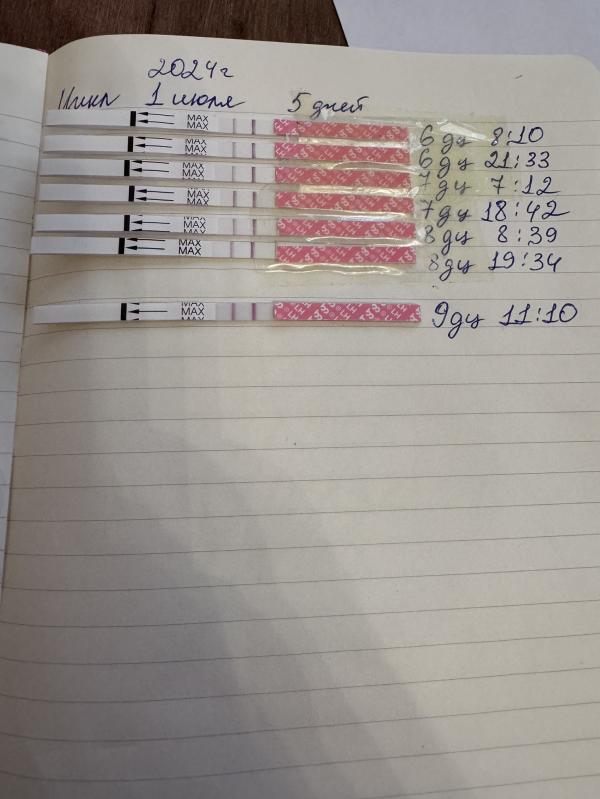 2024г
Цикл 1 июля 5 дней
MAX
MAX
6 дц 8:10
MAX
MAX
6 дц 21:33
MAX
MAX
7 дц 7:12
MAX
MAX
7 дц 18:42
MAX
MAX
8 дц 8:39
MAX
MAX
8 дц 19:34
MAX
MAX
MAX
9 дц 11:10